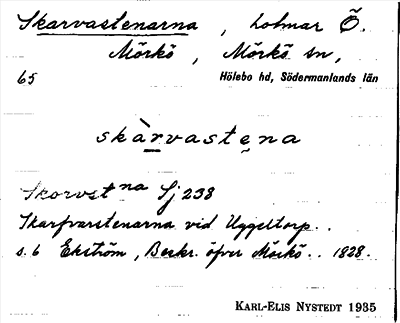 Skarvastenarna, holmar Ö.
Mörkö, Mörkö sn,
65 Hölebo hd, Södermanlands län
skàrvastena
Skorvst na Sj 238
Skarfvarstenarna vid Uggeltorp..
s. 6 Ekström, Beskr. öfver Mörkö.. 1828.
KARL-ELIS NYSTEDT 1935